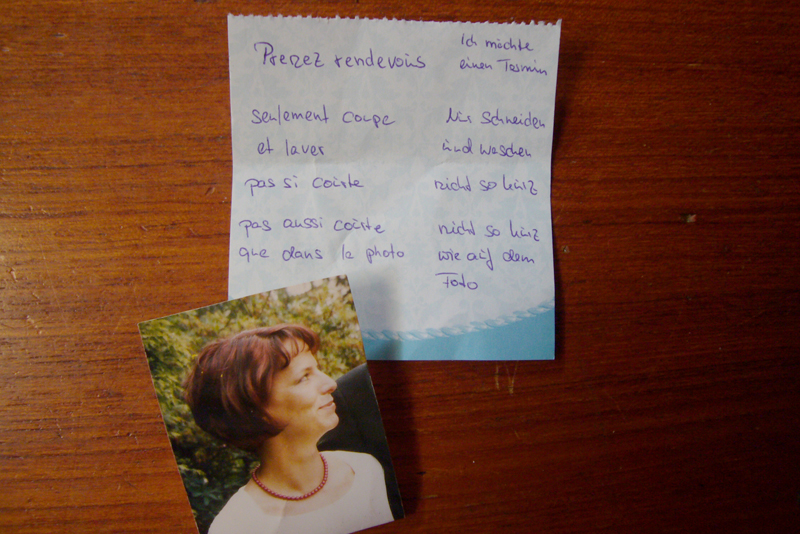 Prenez rendevois
Ich möchte
einen Termin
seulement coupe
Nur schneiden
et laver
und waschen
pas si coûrte
nicht so kurz
pas aussi coûrte
nicht so kurz
que dans la photo
wie auf dem
Foto